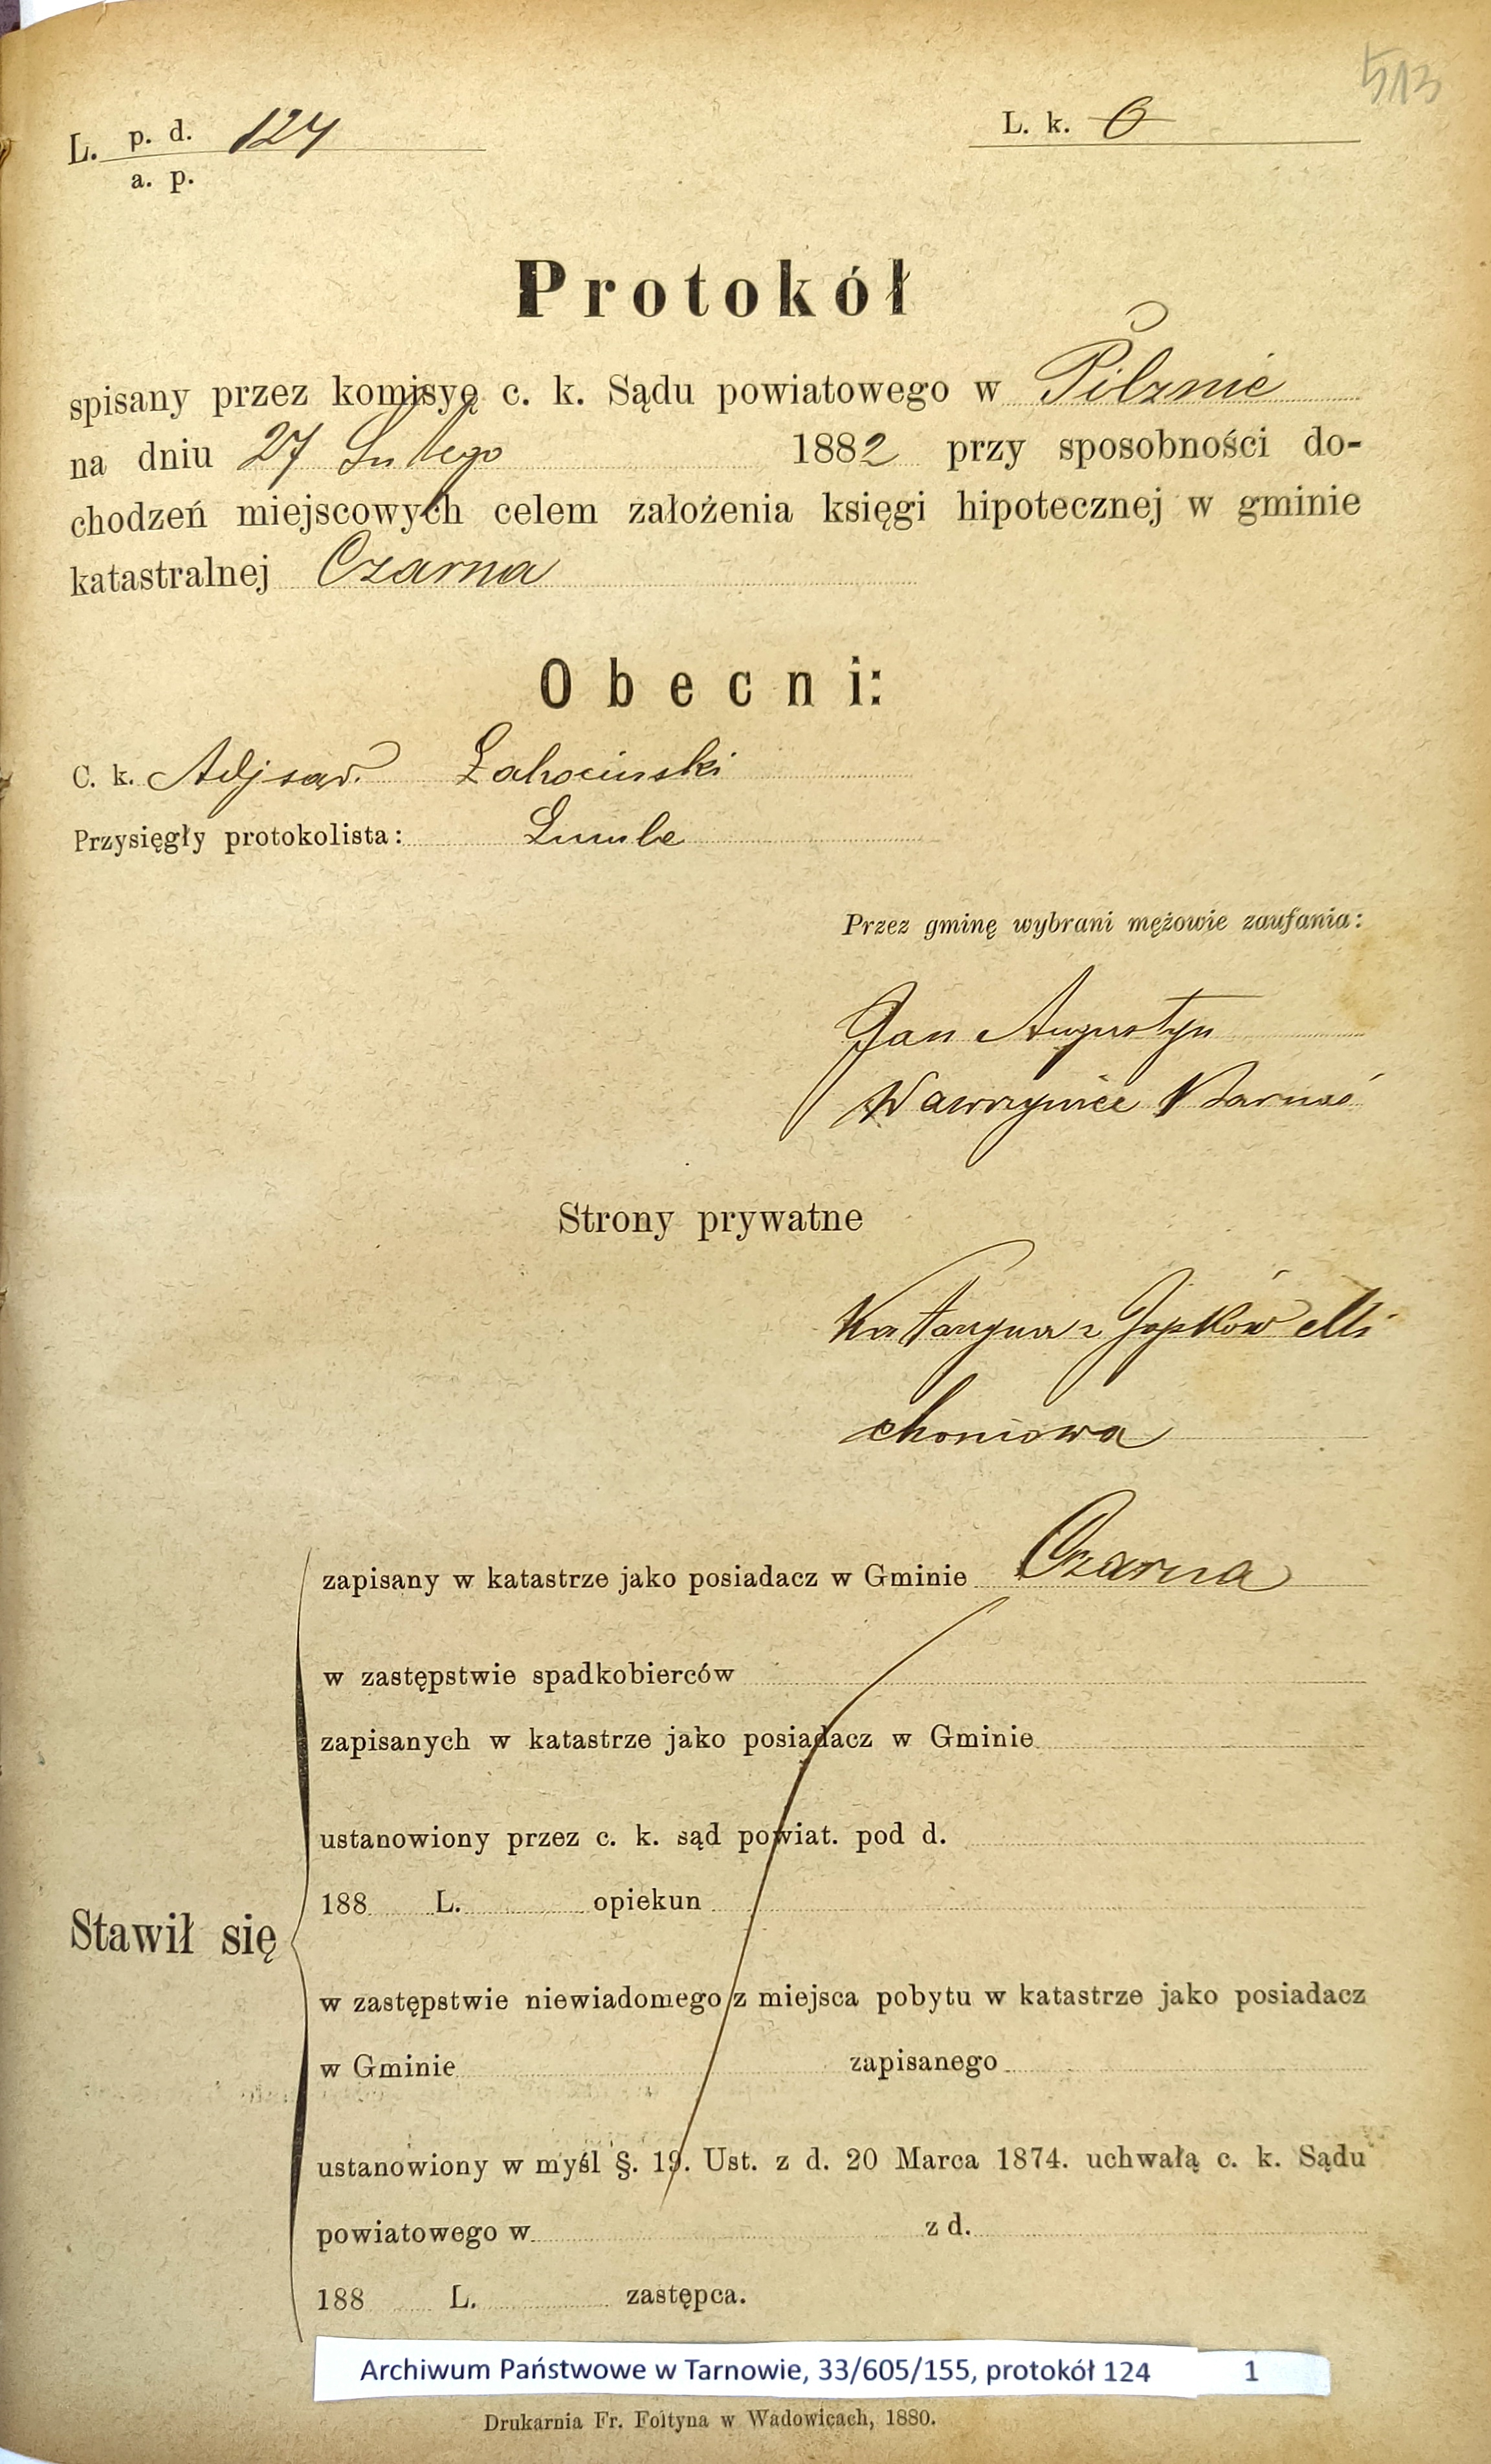 513
L. p. d. 124
a. p.
L. k. 0
Protokół
spisany przez komisyę c. k. Sądu powiatowego w Pilznie
na dniu 27 Lutego 1882 przy sposobności do-
chodzeń miejscowych celem założenia księgi hipotecznej w gminie
katastralnej Czarna
Obecni:
C. k. Adj sąd.
Przysięgły protokolista:
Przez gminę wybrani mężowie zaufania:
Jan Augustyn
Wawrzyniec
Strony prywatne
Katarzyna z Mi
choniowa
zapisany w katastrze jako posiadacz w Gminie Czarna
w zastępstwie spadkobierców
zapisanych w katastrze jako posiadacz w Gminie
ustanowiony przez c. k. sąd powiat. pod d.
188 L. opiekun
Stawił się
w zastępstwie niewiadomego z miejsca pobytu w katastrze jako posiadacz
w Gminie zapisanego
ustanowiony w myśl §. 19. Ust. z d. 20 Marca 1874. uchwałą c. k. Sądu
powiatowego w z d.
188 L. zastępca.
Archiwum Państwowe w Tarnowie, 33/605/155, protokół 124 1
Drukarnia Fr. Foltyna w Wadowicach, 1880.